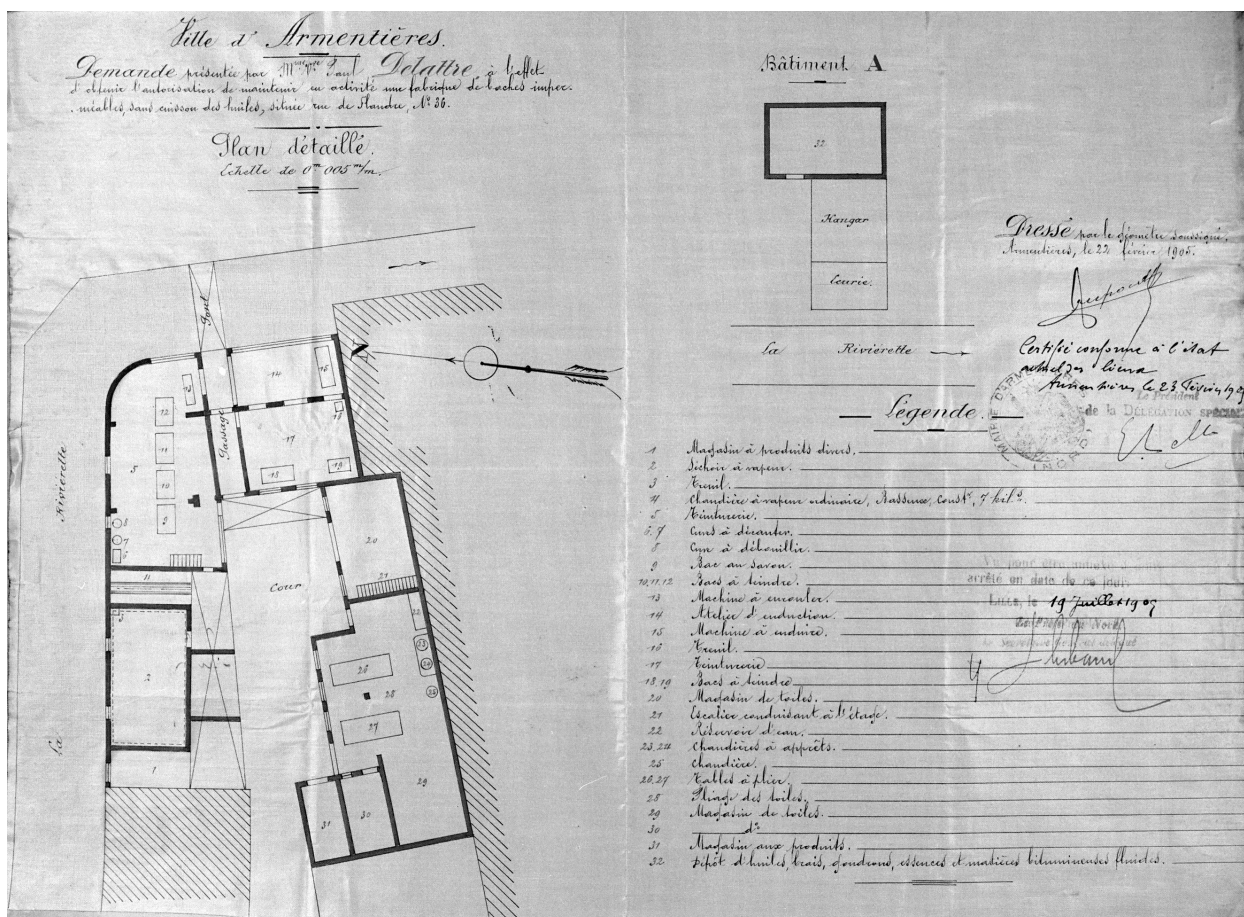 Ville d'Armentières.
Demande présentée par Mme Vve Paul Delattre, à l'effet
d'obtenir l'autorisation de maintenir en activité une fabrique de bâches imper-
méables, sans cuisson des huiles, située rue de Flandre, N° 36.
Plan détaillé.
Echelle de 0m 005 m/m.
Pont
Passage
La Rivièrette
Cour
N
1
2
3
5
6
7
8
9
10
11
12
14
15
16
17
18
19
20
21
22
23
24
25
26
27
28
29
30
31
Bâtiment A
32
Hangar
Ecurie.
La Rivièrette
Dressé par le géomètre soussigné.
Armentières, le 22 février 1905.
Certifié conforme à l'état
actuel des lieux
Armentières le 23 Février 1905
Le Président
de la DÉLÉGATION SPÉCIALE
MAIRIE D'ARMENTIÈRES
(NORD)
Légende.
1 Magasin à produits divers.
2 Séchoir à vapeur.
3 Treuil.
4 Chaudière à vapeur ordinaire, Bassence, Constr, 7 kil°.
5 Teinturerie.
6.7 Cuves à décanter.
8 Cuve à débouillir.
9 Bac au savon.
10,11,12 Bacs à teindre.
13 Machine à encoller.
14 Atelier d'enduction.
15 Machine à enduire.
16 Treuil.
17 Teinturerie
18,19 Bacs à teindre
20 Magasin de toiles.
21 Escalier conduisant à l'étage.
22 Réservoir d'eau.
23,24 Chaudières à apprêts.
25 Chaudière.
26,27 Tables à plier.
28 Pliage des toiles.
29 Magasin de toiles.
30 d°
31 Magasin aux produits.
32 Dépôt d'huiles, brais, goudrons, essences et matières bitumineuses fluides.
arrêté en date de ce jour.
LILLE, le 19 Juillet 1905